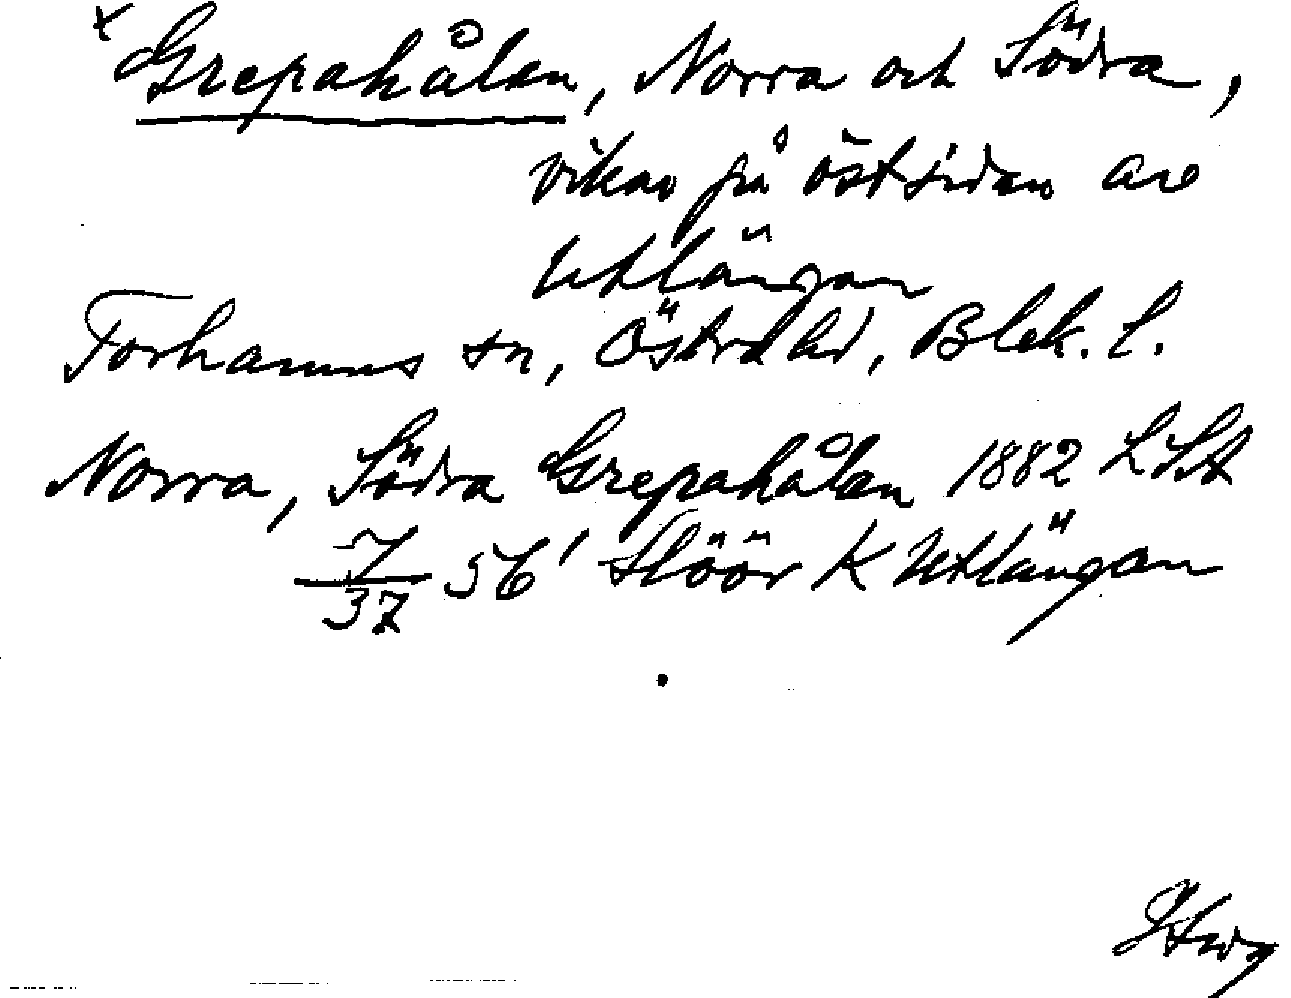 x Grepahålan, Norra och Södra,
vikar på östsidan av
Utlängan
Torhamns sn, Östra hd, Blek. l.
Norra, Södra Grepahålan 1882 LSA
7/37 56' Slöör K Utlängan